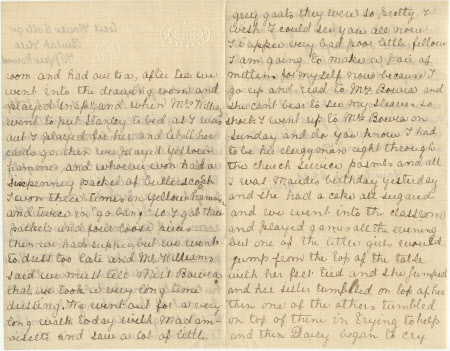 House College
room and had our tea, after tea we
went into the drawing room and
played snap, and when Mrs Willia
went to put Stanley to bed as I was
out I played for her and
cards go, then we played yellow
and whoever won had a
sixpenny packet of Butterscotch
I won three times in yellow
and twice in "go bang" so I got three
packets and four loose pieces
then we had supper, but we went
to dust too late and Mr Williams
said we must tell Miss Bowra
that we took a very long time
dressing. We went out for a very
long walk today with Madam-
oiselle and saw a lot of little
grey goats they were so pretty. I
wish I could see you all now
I suppose very bad poor little fellow
I am going to make a pair of
mittens for myself now because I
go up and read to Mrs Bowra and
she cant bear to see my sleeves so
short I went up to Mrs Bowra on
Sunday and do you know I had
to be her clergyman right through
the church service psalms and all
I was Maudes birthday yesterday
and she had a cake all sugared
and we went into the classroom
and played games all the evening
but one of the little girls would
jump from the top of the table
with her feet tied and she jumped
and her sister tumbled on top of her
then one of the others tumbled
on top of them in trying to help
and then Daisy began to cry